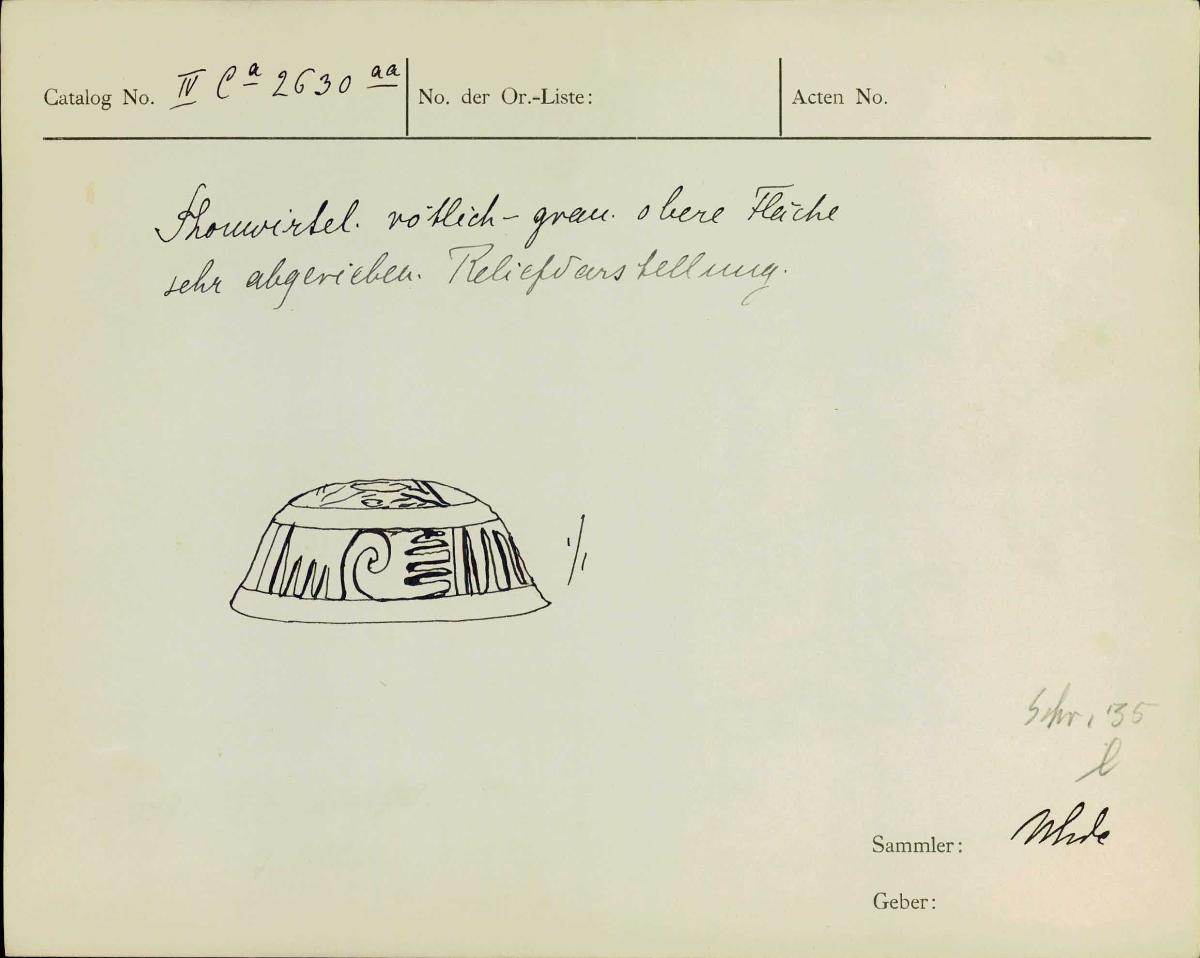 Catalog No. IV Ca 2630 aa
No. der Or.-Liste:
Acten No.
Thonwirtel. rötlich-grau. obere Fläche
sehr abgerieben. Reliefdarstellung.
1/1
Schr. 35
l
Sammler: Uhde
Geber: